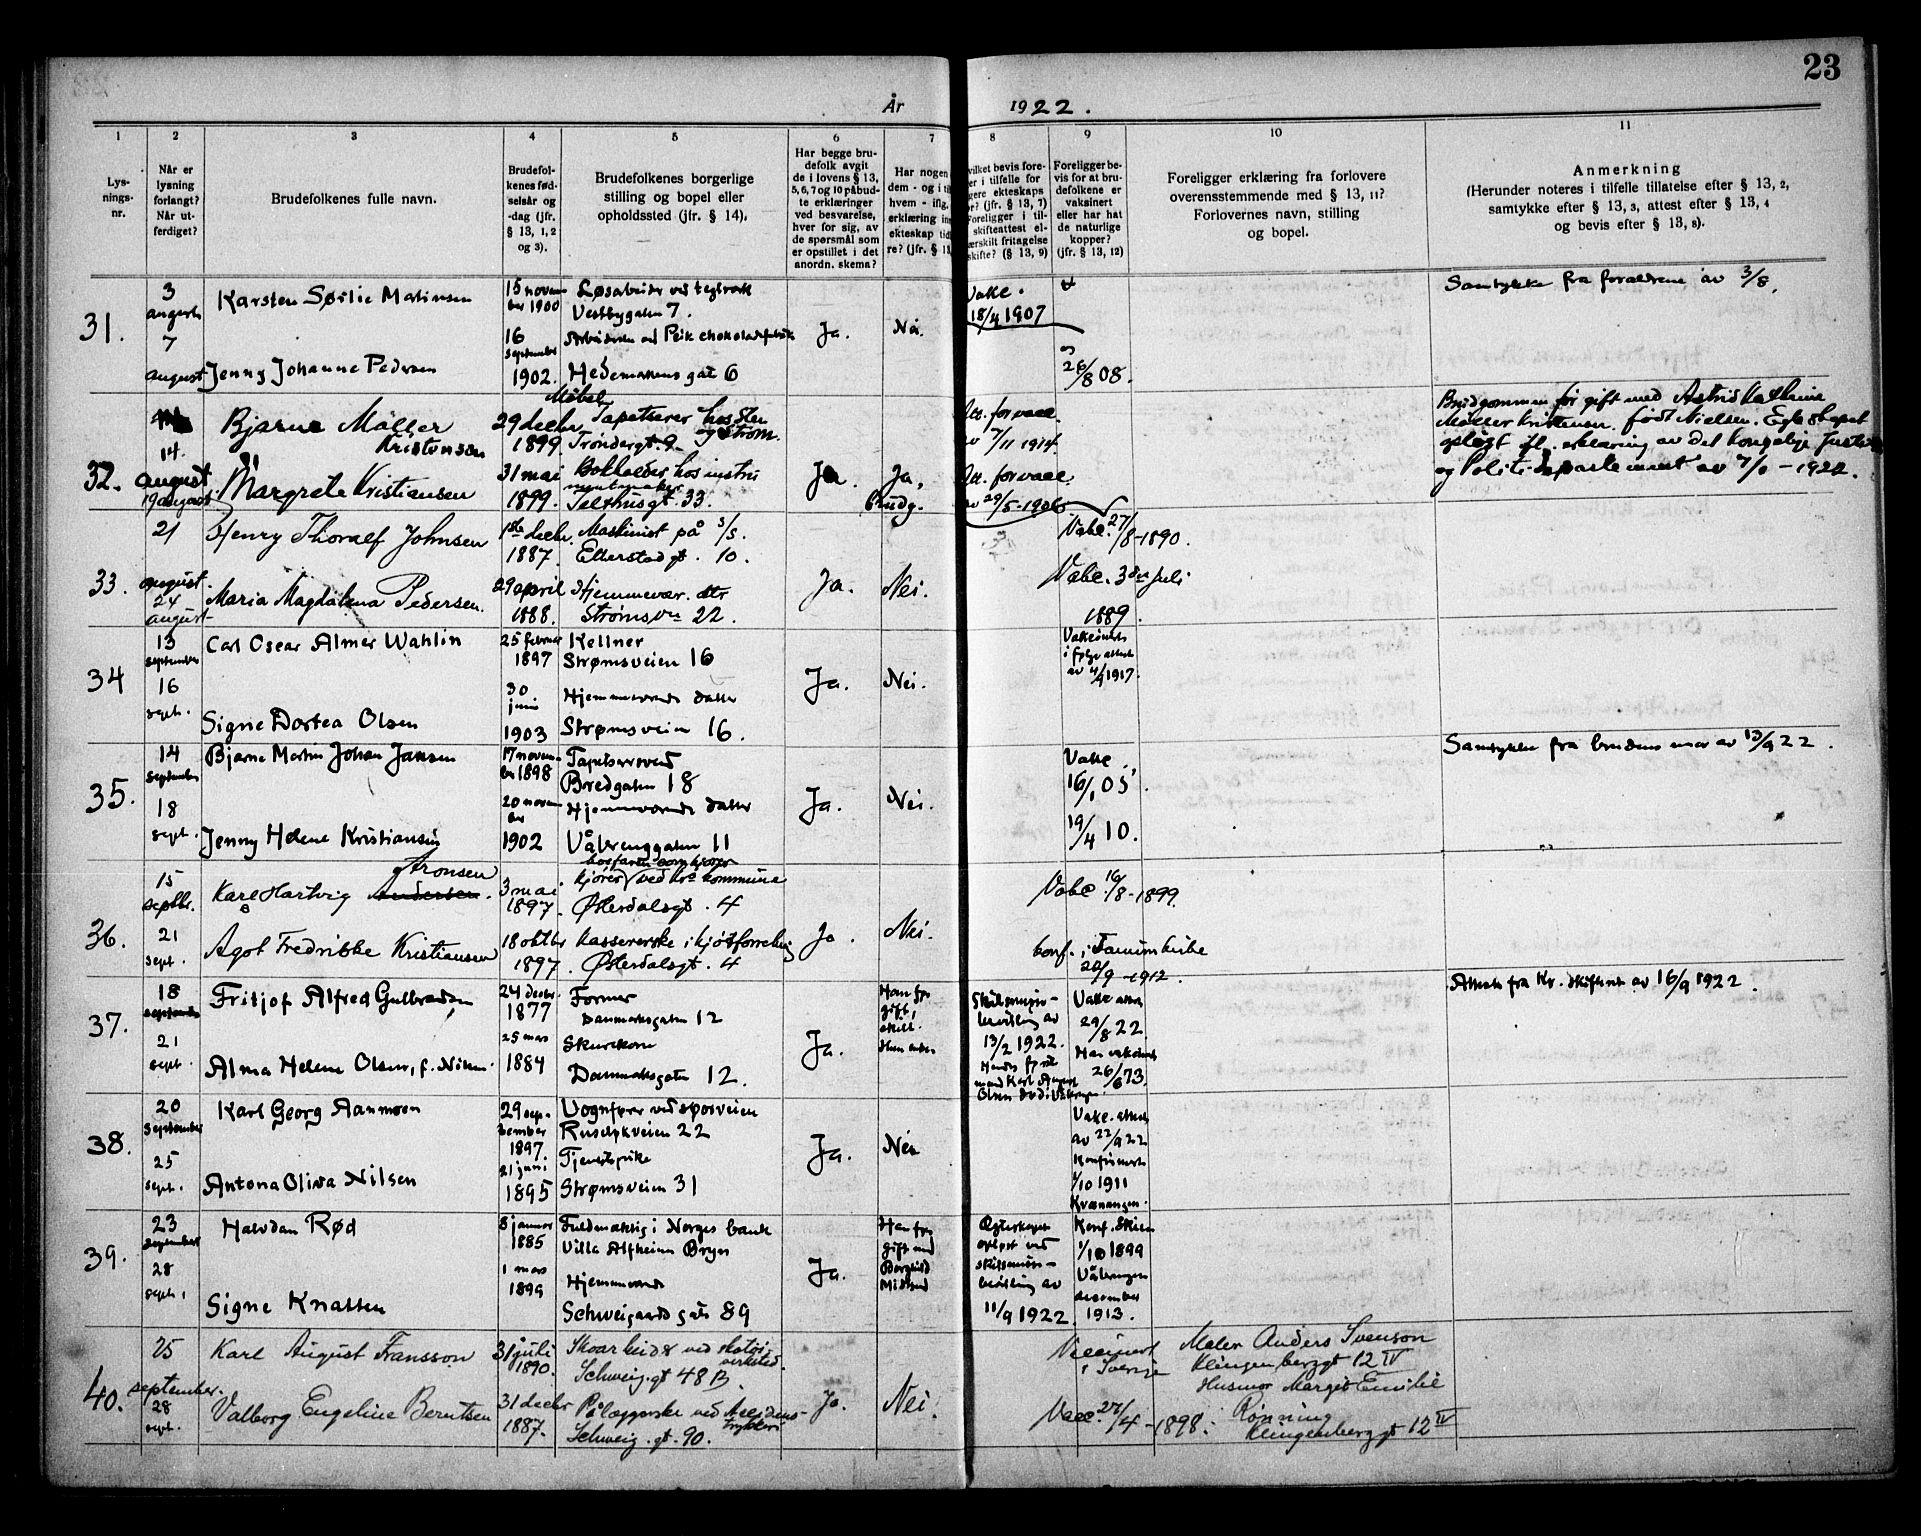 23
År 1922.
1 2 3 4 5 6 7 8 9 10 11
Lys-
nings-
nr.
Når er
lysning
forlangt?
Når ut-
ferdiget?
Brudefolkenes fulle navn.
Brudefol-
kenes fød-
selsår og
-dag (jfr.
§ 13, 1, 2
og 3).
Brudefolkenes borgerlige
stilling og bopel eller
opholdssted (jfr. § 14).
Har begge bru-
defolk avgit
de i lovens § 13,
5, 6, 7 og 10 påbud-
te erklæringer
ved besvarelse,
hver for sig, av
de spørsmål som
er opstillet i det
anordn. skema?
Har nogen
dem - og i til
hvem - iflg.
erklæring inn
ekteskap tid
re? (jfr. § 13
vilket bevis fore-
er i tilfelle for
gere ekteskaps
or? (jfr. § 13, 7)
Foreligger i til-
skifteattest el-
ærskilt fritagelse
skifte? (§ 13, 9)
Foreligger be-
vis for at bru-
defolkene er
vaksinert
eller har hat
de naturlige
kopper?
(jfr. § 13, 12)
Foreligger erklæring fra forlovere
overensstemmende med § 13, 11?
Forlovernes navn, stilling
og bopel.
Anmerkning
(Herunder noteres i tilfelle tillatelse efter § 13, 2,
samtykke efter § 13, 3, attest efter § 13, 4
og bevis efter § 13, 8).
31.
3
august
7
august
Karsten Sørlie Matinsen
Jenny Johanne Pedersen
15 novem-
ber 1900
16
september
1902.
Løsarbeider ved teglverk
Vestbygaten 7.
Arbeiderske ved Peik chokoladefabrik
Hedemarkens gat 6
Ja.
Nei.
Vakc.
18/4 1907
26/8 08.
Samtykke fra forældrene av 3/8.
32.
14.
august
19 august
Bjarne Möller
Kristensen
Margrete Kristiansen
29 decbr
1899.
31 mai
1899.
Möbel
Tapetserer hos Sten
og Strøm.
Trondergt. 9
Bokholder hos instru
mentmaker
Telthusgt. 33.
Ja.
Ja,
brudg.
Att. for vacc.
av 7/11 1914.
Att. for vacc.
av 29/5-1906
Brudgommen før gift med Astrid Kathrine
Møller Kristensen født Nielsen. Egteskapet
opløst ifl. erklæring av det kongelige Justis
og Politi Departement av 7/ -1922.
33.
21
august.
24
august
Henry Thoralf Johnsen
Maria Magdalena Pedersen.
1ste decbr.
1887.
29 april
1888.
Maskinist på S/S.
Etterstadgt. 10.
Hjemmevær. dtr
Strømsvn 22.
Ja.
Nei.
Vabc. 27/8-1890.
Vabc. 3de juli
1889.
34
13
september
16
sept.
Carl Oscar Almer Wahlin
Signe Dortea Olsen
25 februar
1897
30.
juni
1903
Kellner
Strømsveien 16
Hjemmeværende datter
Strømsveien 16.
Ja.
Nei.
Vakcinert
i følge attest
av 4/9 1917.
35.
14
september
18
sept.
Bjarne Martin Johan Jansen
Jenny Helene Kristiansen
17 novem-
ber 1898
20 novem
ber
1902
Tapetsersvend
Bredgaten 18
Hjemmeværende datter
Vålerenggaten 11
Ja.
Nei.
Vakc.
16/1 05
19/4 10.
Samtykke fra brudens mor av 13/9 22.
36.
15
septbr.
21
sept.
Aronsen
Karl Hartvig Andersen.
Agot Fredrikke Kristiansen
3 mai
1897.
18 oktbr
1897.
kjører ved Kra kommune
Østerdalsgt. 4
Kassererske i kjøtforretning
Østerdalsgt. 4
Ja.
Nei.
Vabc. 16/8-1899.
Konf. i Tanumkirke
29/9-1912.
37.
18
september
21
sept.
Fritjof Alfred Gulbrandsen
Alma Helene Olsen, f. Nilsen.
24 decbr.
1877
25 mars
1884
Former
Danmarksgaten 12
Skurekone
Danmarksgaten 12.
Ja.
Han før
gift,
skilt.
Hun enke
Skilsmisse-
bevilling av
13/2 1922.
Hendes første
mand Karl August
Olsen død i Vålerengen
Vakc. attest
29/8 22
Har vakcinert
26/6 73.
Attest fra Kr. skifteret av 16/9 1922.
38.
20
september
25
sept.
Karl Georg Aanmoen
Antona Oliva Nilsen
29 sep-
tember
1897.
21 juni
1895
Vognfører ved sporveien
Ruseløkveien 22
Tjenestepike
Strømsveien 31
Ja.
Nei
Vakc. attest
av 22/9 22
Konfirmert
1/10 1911
Kvænangen.
39.
23
september
28
sept.
Halvdan Rød
Signe Knatten
8 januar
1885
1 mars
1899
Fuldmæktig i Norges bank
Villa Alfheim Bryn
Hjemmeværende
Schweigaards gate 89
Ja.
Han før
gift med
Borghild
Midtsund
Egteskapet
opløst ved
skilsmisse-
bevilling av
11/9 1922.
Konf. Skien
1/10 1899
Vålerengen
desember
1913.
40.
25
september.
28
sept.
Karl August Fransson
Valborg Engeline Berntsen
31 juli
1890.
31 decbr
1887.
Skoarbeider ved skotøi-
virksted.
Schweig.gt 48 B.
Pålæggerske ved Accidens-
trykkeri
Schweig. gt. 90.
Ja.
Nei.
Vaccinert
i Sverige
Vacc. 27/4-1898.
Maler Anders Svenson
Klingenberggt 12 IV
Husmor Margit Emilie
Rønning
Klingenberggt 12 IV